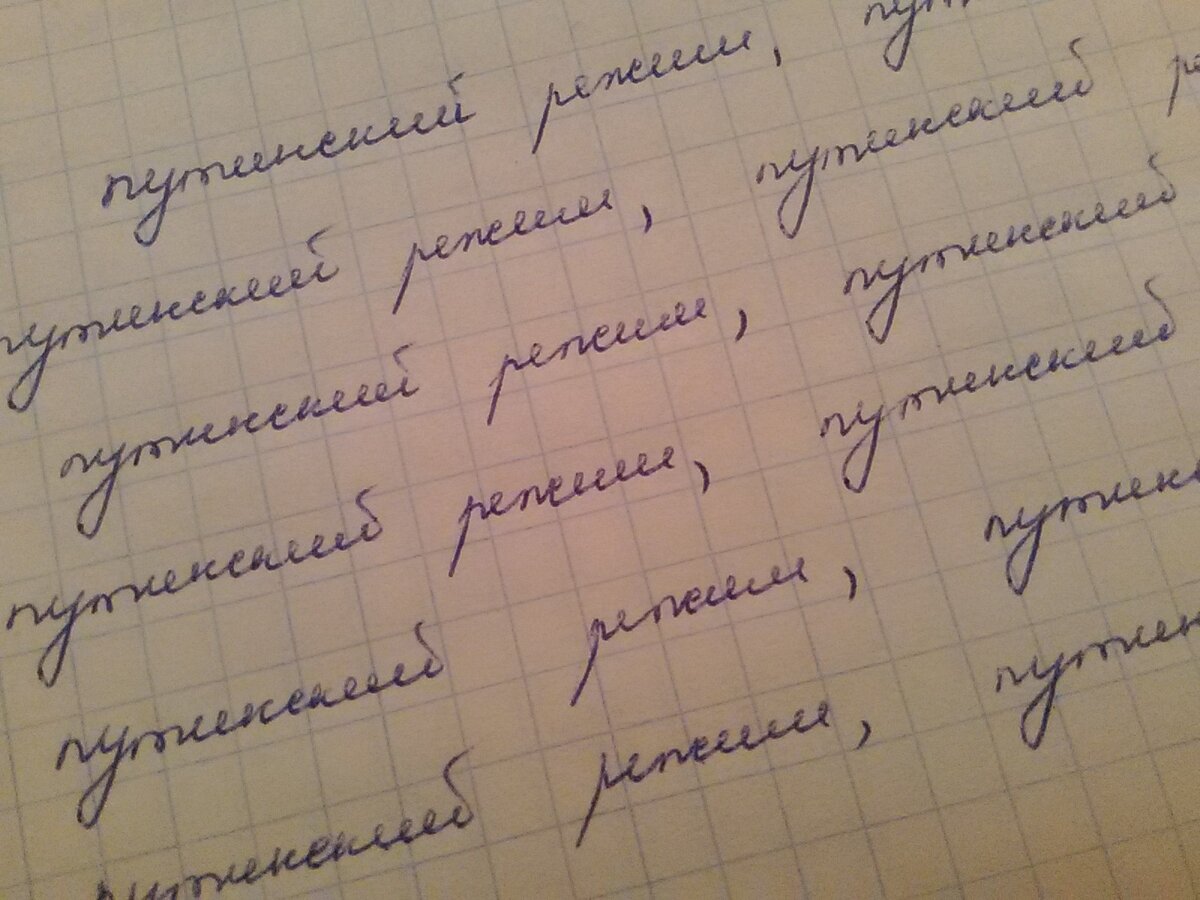 путинский режим, пут
путинский режим, путинский ре
путинский режим, путинский
путинский режим, путинский
путинский режим, путинс
путинский режим, путин